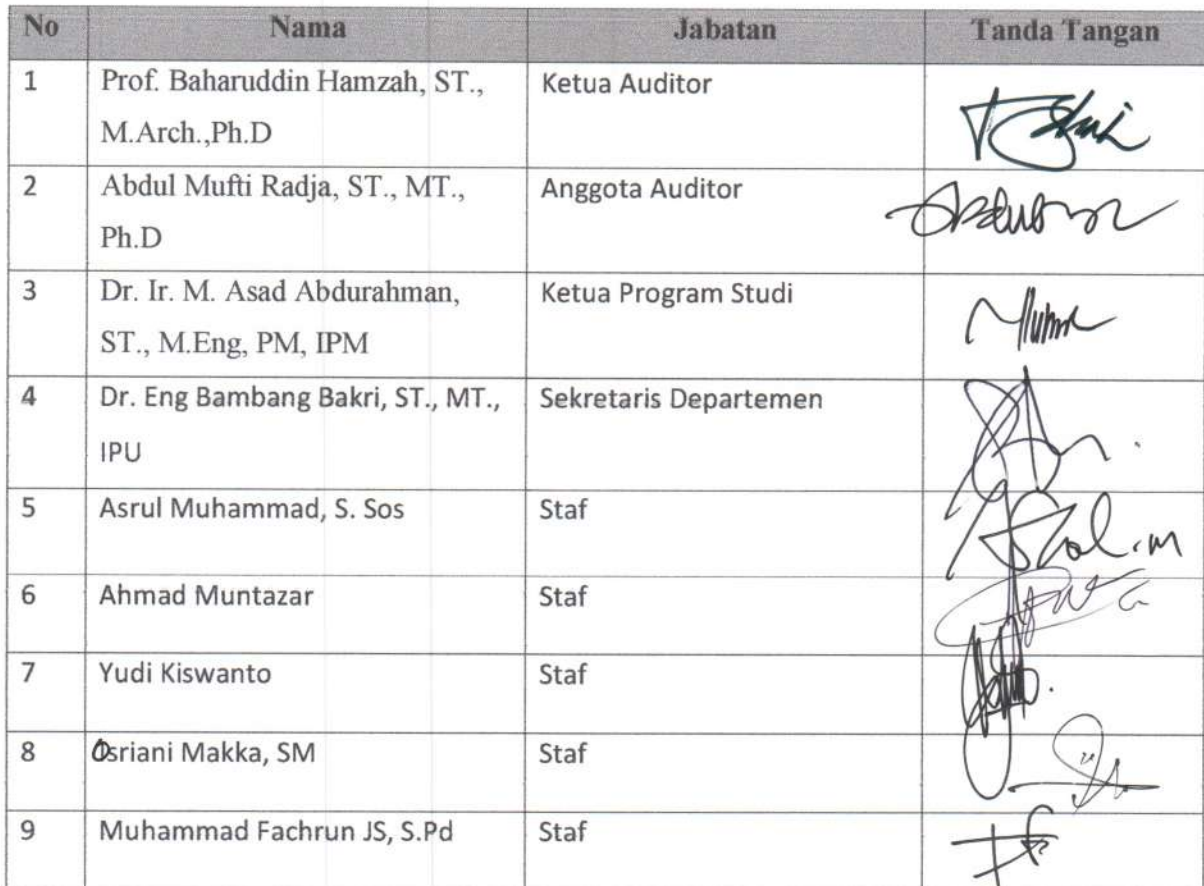 No Nama Jabatan Tanda Tangan
1 Prof. Baharuddin Hamzah, ST., Ketua Auditor
M.Arch.,Ph.D
2 Abdul Mufti Radja, ST., MT., Anggota Auditor
Ph.D
3 Dr. Ir. M. Asad Abdurahman, Ketua Program Studi
ST., M.Eng, PM, IPM
4 Dr. Eng Bambang Bakri, ST., MT., Sekretaris Departemen
IPU
5 Asrul Muhammad, S. Sos Staf
6 Ahmad Muntazar Staf
7 Yudi Kiswanto Staf
8 Osriani Makka, SM Staf
9 Muhammad Fachrun JS, S.Pd Staf